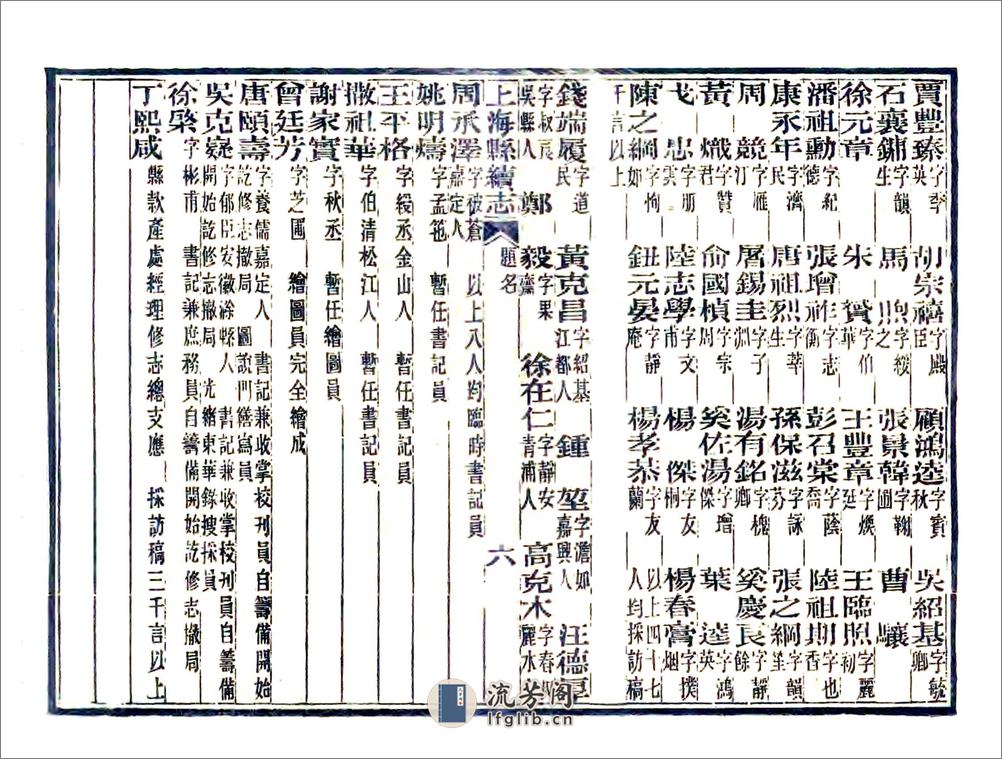 賈豐臻字季英 胡宗禧字殿臣 顧鴻逵字賓秋 吳紹基字毓卿
石襄鏞字韻生 馬煦字綏之 張景韓字鞠圃 曹驤
徐元章 朱贊字伯華 王豐章字煥廷 王臨照字麗初
潘祖勳字紀德 張增祚字志衡 彭召棠字蔭喬 陸祖期字也香
康永年字濟民 唐祖烈字莘生 孫保滋字詠芬 張之綱字韻笙
周競字雁汀 屠錫圭字子淵 湯有銘字槐卿 奚慶良字靜餘
黃熾字贊君 俞國楨字宗周 奚佐湯字璔傑 葉逵字鴻英
戈忠字朋雲 陸志學字文甫 楊傑字友桐 楊春膏字撲烟
陳之綱字恂如 鈕元晏字靜庵 楊孝恭字友蘭 以上四十七人均採訪稿
千言以上
錢端履字道民 黃克昌字紹基江都人 鍾堃字澹如嘉興人 汪德
字叔良吳縣人 鄭毅字果齋 徐在仁字靜安青浦人 高克木字春
上海縣續志 題名 六
周承澤字破蒼嘉定人 以上八人均臨時書記員
姚明燽字孟苞 暫任書記員
王平格字綬丞金山人 暫任書記員
撒祖華字伯清松江人 暫任書記員
謝家實字秋丞 暫任繪圖員
曾廷芳字芝圃 繪圖員完全繪成
唐頤壽字養儒嘉定人 書記兼收掌校刊員自籌備開始訖修志撤局 圖說門繕寫員
吳克晏字郁臣安徽歙縣人 書記兼收掌校刊員自籌備開始訖修志撤局 光緒東華錄搜採員
徐棨字彬甫 書記兼庶務員自籌備開始訖修志撤局
丁熙咸縣款產處經理修志總支應 採訪稿三千言以上
流芳閣
lfglib.cn